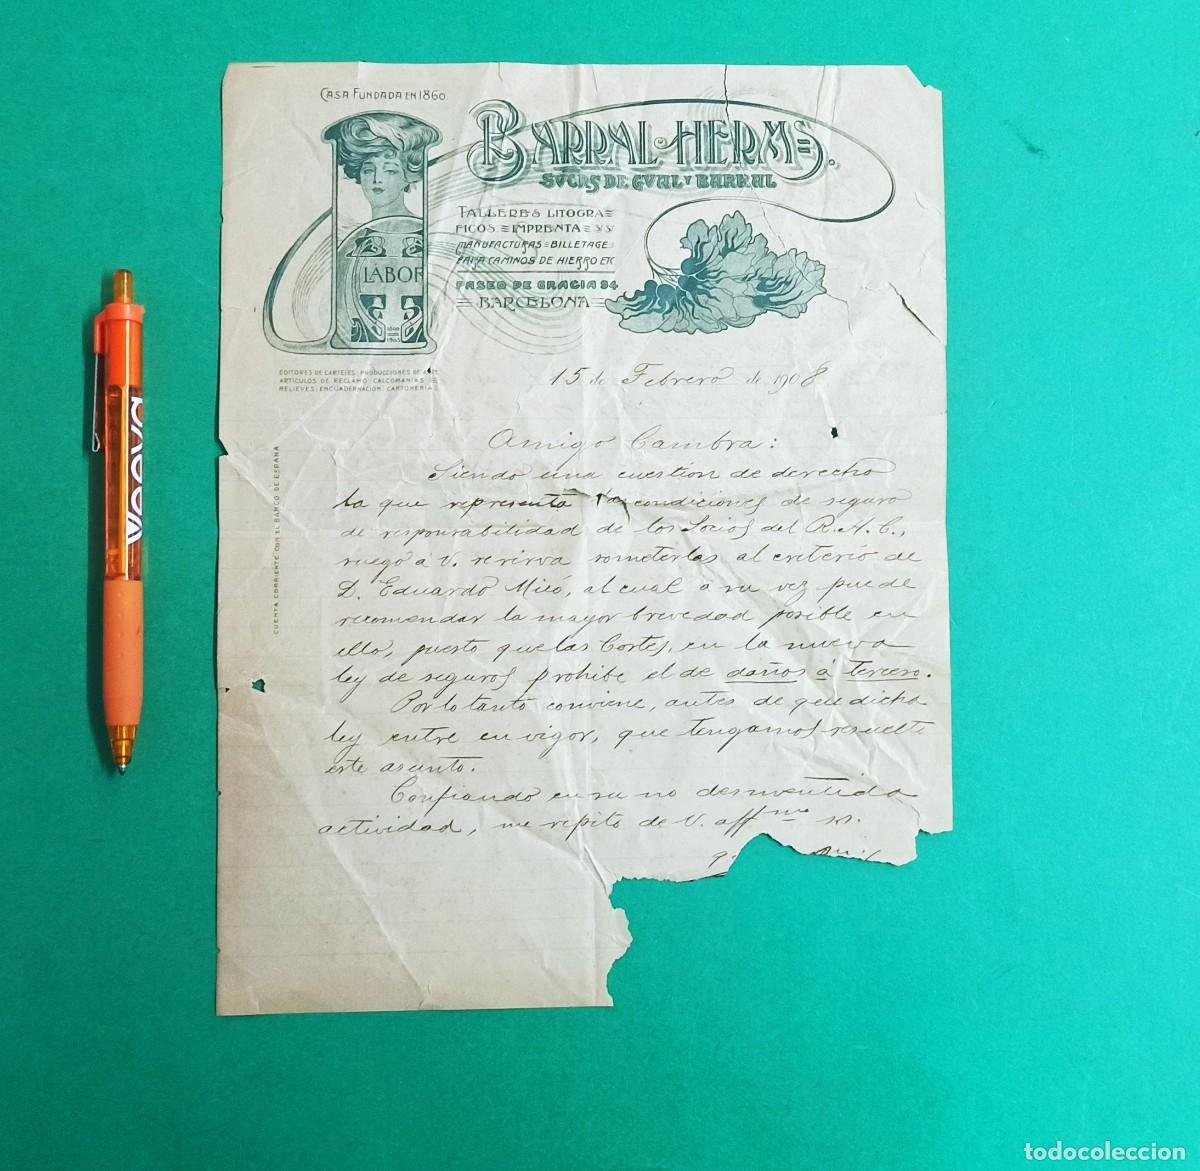 CASA FUNDADA EN 1860
BARRAL HERMS.
SUCRS DE GUAL Y BARRAL
LABOR
1860
1905
TALLERES LITOGRA
FICOS IMPRENTA
MANUFACTURAS BILLETAGE
PARA CAMINOS DE HIERRO ETC
PASEO DE GRACIA 94
BARCELONA
EDITORES DE CARTELES: PRODUCCIONES DE
ARTICULOS DE RECLAMO CALCOMANIAS
RELIEVES: ENCUADERNACION CARTONERIA
CUENTA CORRIENTE CON EL BANCO DE ESPAÑA
15 de Febrero de 1908
Amigo Cambra:
Siendo una cuestion de derecho
la que representa las condiciones de seguro
de responsabilidad de los Socios del R.A.C.,
ruego á V. se sirva someterlas al criterio de
D. Eduardo Micó, al cual a su vez puede
recomendar la mayor brevedad posible en
ello, puesto que las Cortes, en la nueva
ley de seguros prohibe el de daños á tercero.
Por lo tanto conviene, antes de que dicha
ley entre en vigor, que tengamos resuelto
este asunto.
Confiando en su no desmentida
actividad, me repito de V. affmo ss.
q.
veeva
todocoleccion